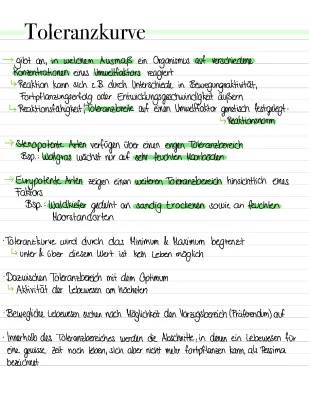 Toleranzkurve
→ gibt an, in welchem Ausmaß ein Organismus auf verschiedene
Konzentrationen eines Umweltfaktors reagiert
↳ Reaktion kann sich z.B. durch Unterschiede in Bewegungsaktivität,
Fortpflanzungserfolg oder Entwicklungsgeschwindigkeit äußern
↳ Reaktionsfähigkeit, Toleranzbreite auf einen Umweltfaktor genetisch festgelegt
↳ Reaktionsnorm
→ Stenopotente Arten verfügen über einen engen Toleranzbereich
Bsp.: Wollgras wächst nur auf sehr feuchten Moorböden
→ Eurypotente Arten zeigen einen weiteren Toleranzbereich hinsichtlich eines
Faktors
Bsp.: Waldkiefer gedeiht an sandig trockenen sowie an feuchten
Moorstandorten
· Toleranzkurve wird durch das Minimum & Maximum begrenzt
↳ unter & über diesem Wert ist kein Leben möglich
· Dazwischen Toleranzbereich mit dem Optimum
↳ Aktivität der Lebewesen am höchsten
· Bewegliche Lebewesen suchen nach Möglichkeit den Vorzugsbereich (Präferendum) auf
· Innerhalb des Toleranzbereiches werden die Abschnitte, in denen ein Lebewesen für
eine gewisse Zeit noch leben, sich aber nicht mehr fortpflanzen kann, als Pessima
bezeichnet